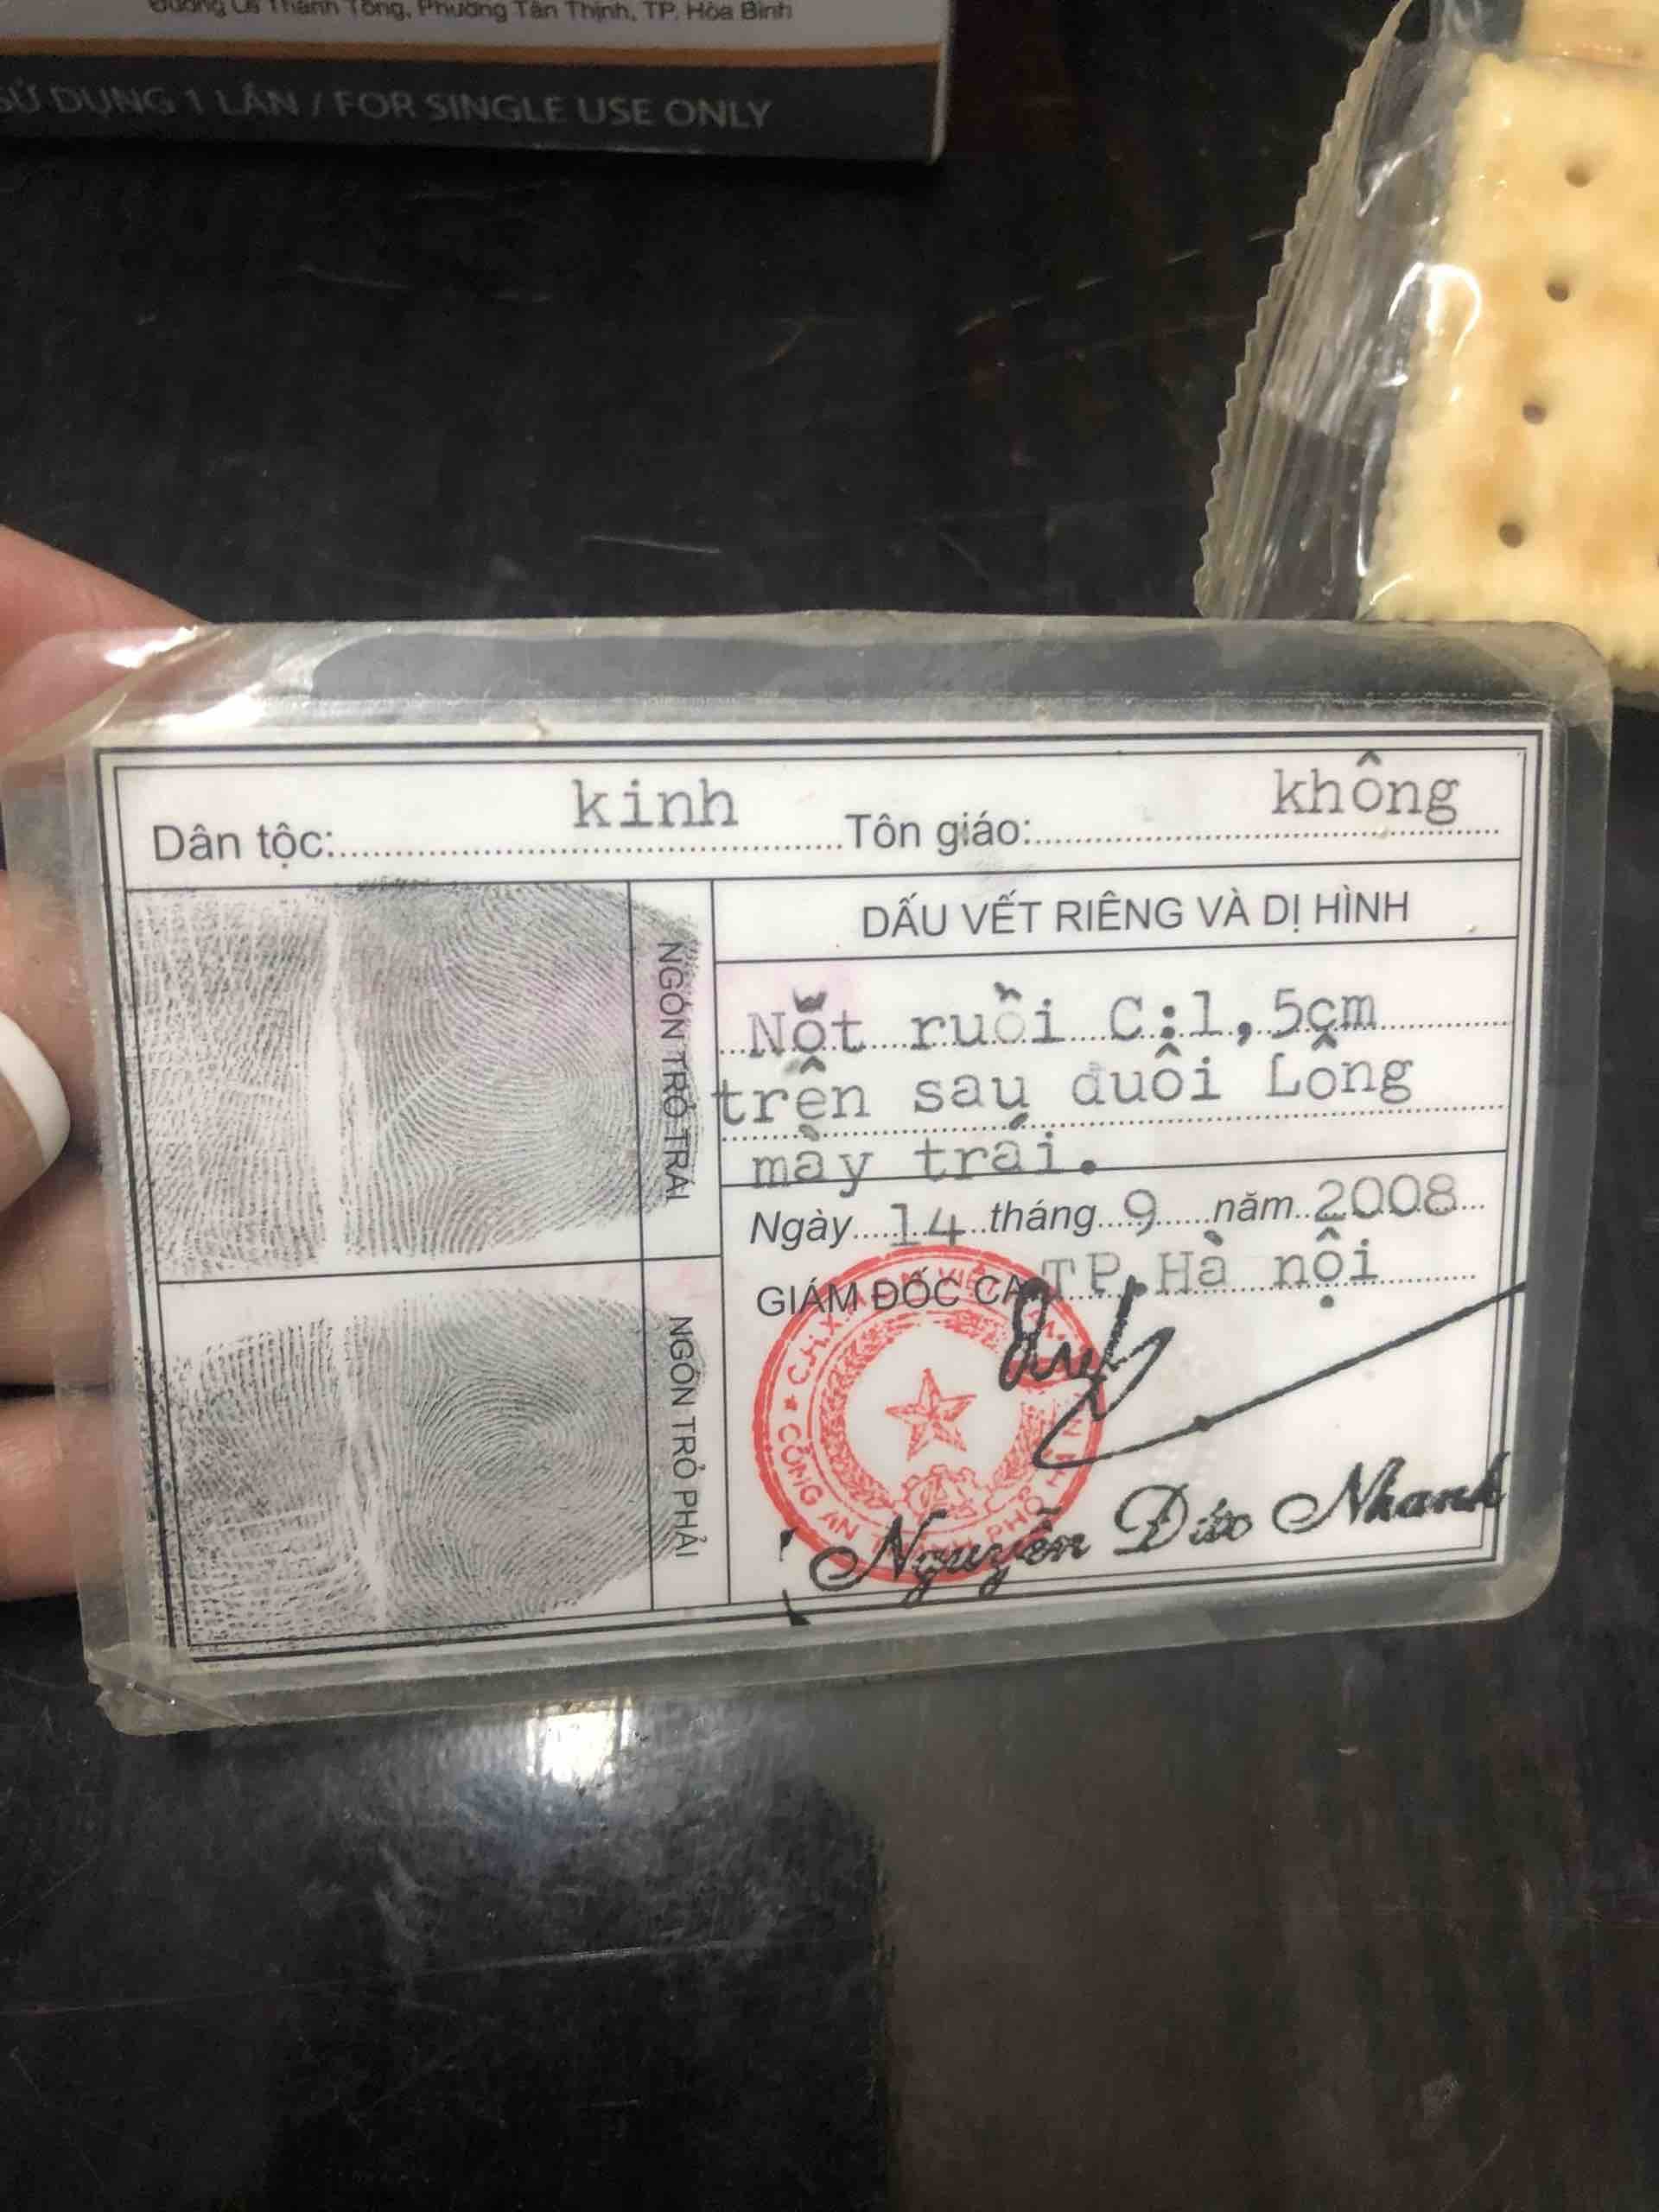 Đường Lê Thánh Tông, Phường Tân Thịnh, TP. Hòa Bình
SỬ DỤNG 1 LẦN / FOR SINGLE USE ONLY
Dân tộc: kinh Tôn giáo: không
NGÓN TRỎ TRÁI
DẤU VẾT RIÊNG VÀ DỊ HÌNH
Nốt ruồi C:1,5cm
trên sau đuôi Lông
mày trái.
Ngày 14 tháng 9 năm 2008
GIÁM ĐỐC CA TP.Hà nội
NGÓN TRỎ PHẢI
CÔNG AN
Nguyễn Đức Nhanh